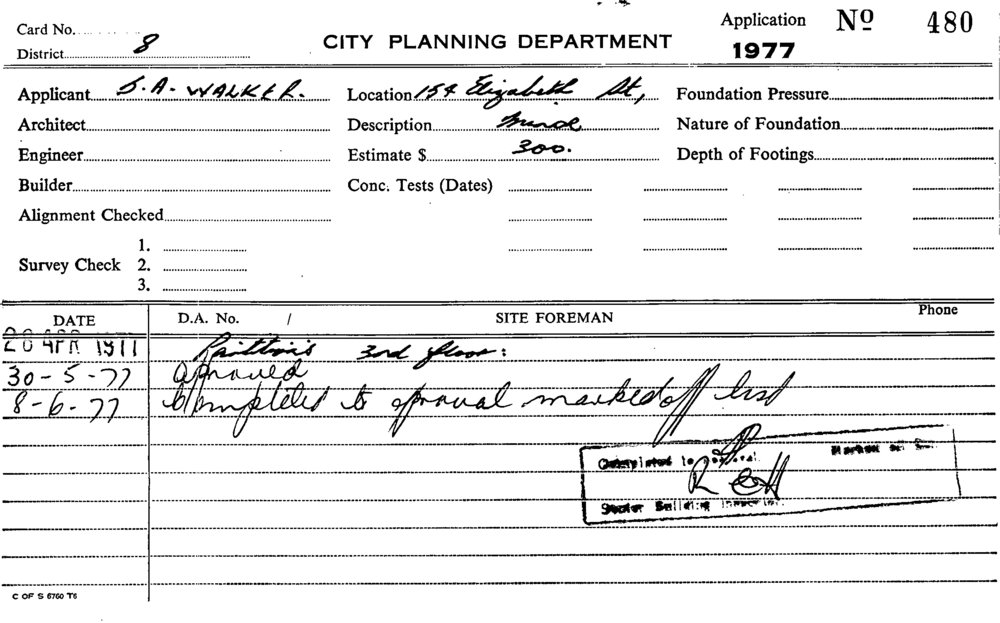 Card No.
Application Nº 480
District 8
CITY PLANNING DEPARTMENT
1977
Applicant S.A. WALKER.
Location 154 Elizabeth St,
Foundation Pressure
Architect
Description Minor
Nature of Foundation
Engineer
Estimate $ 300.
Depth of Footings
Builder
Conc. Tests (Dates)
Alignment Checked
Survey Check 1.
2.
3.
DATE
D.A. No. /
SITE FOREMAN
Phone
20 APR 1977 3rd floor:
30-5-77 aproved
8-6-77 Completed to aproval marked off list
Completed to
Senior Building Inspector.
C OF S 6760 T6